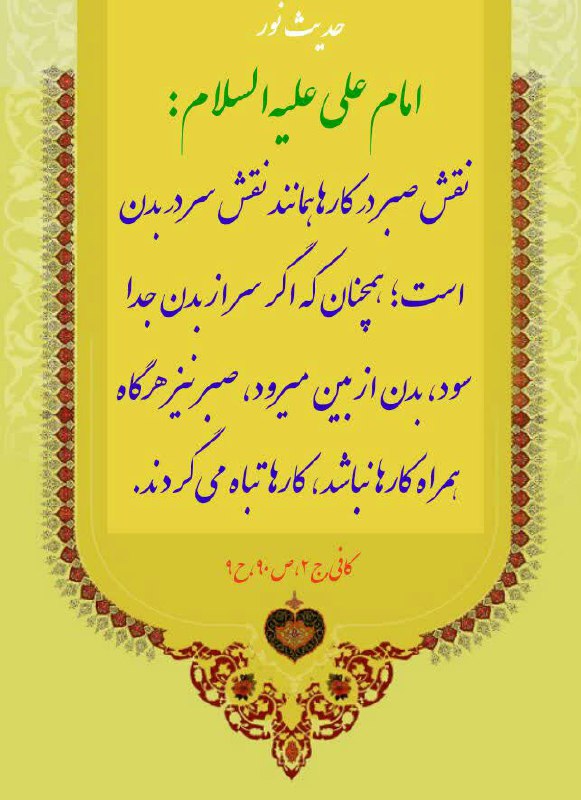 حدیث نور
امام علی علیه السلام:
نقش صبر در کارها همانند نقش سر در بدن
است؛ همچنان که اگر سر از بدن جدا
سود، بدن از بین میرود، صبر نیز هرگاه
همراه کارها نباشد، کارها تباه می گردند.
کافی ج ۲، ص ۹۰، ح ۹